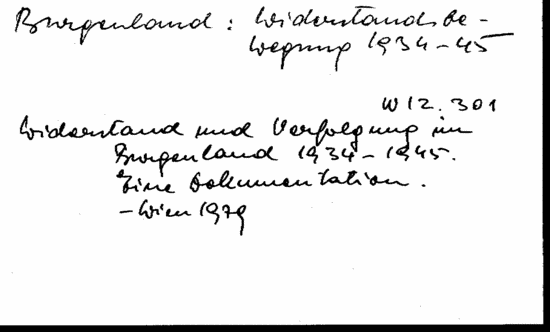 Burgenland: Widerstandsbe-
wegung 1934-45
W 12.301
Widerstand und Verfolgung im
Burgenland 1934-1945.
Eine Dokumentation.
-Wien 1979